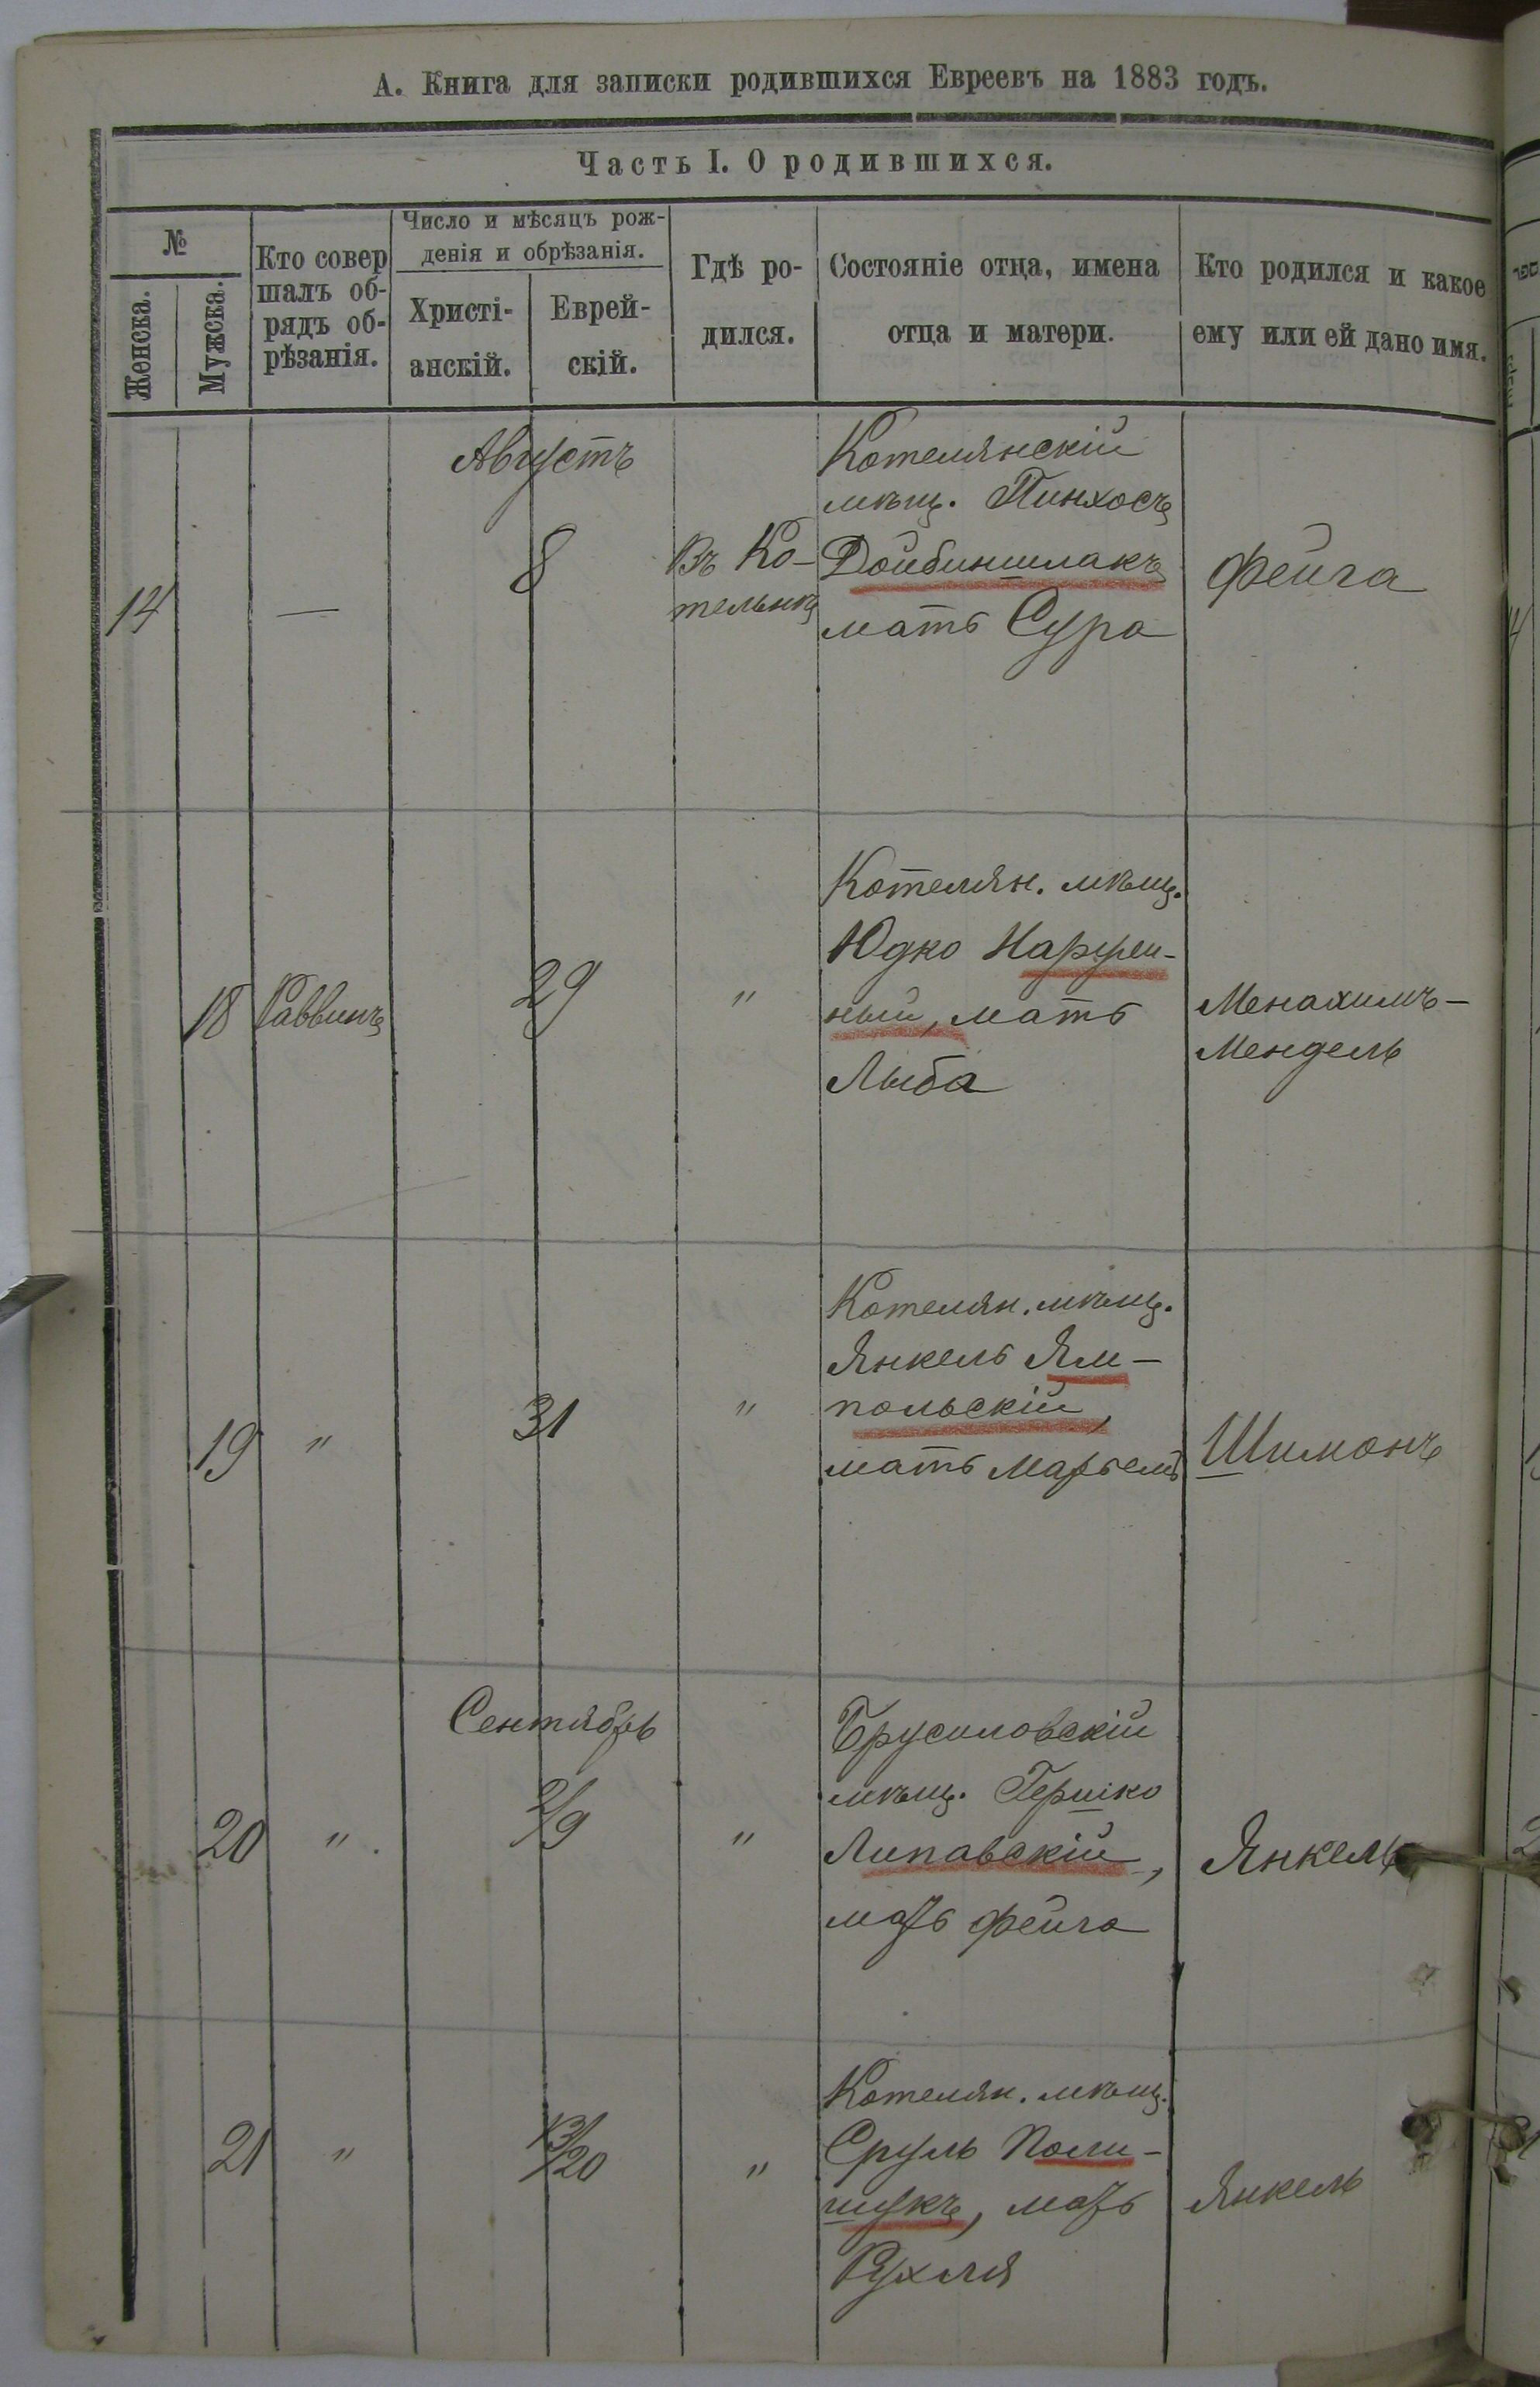 А. Книга для записки родившихся Евреевъ на 1883 годъ.
Часть I. О родившихся.
№
Женска.
Мужска.
Кто совер
шалъ об-
рядъ об-
рѣзанія.
Число и мѣсяцъ рож-
денія и обрѣзанія.
Христі-
анскій.
Еврей-
скій.
Гдѣ ро-
дился.
Состояніе отца, имена
отца и матери.
Кто родился и какое
ему или ей дано имя.
Августъ
14
—
8
Въ Ко-
тельнѣ
Котелянскій
мѣщ. Пинхосъ
Дойбиншлакъ
мать Сура
Фейга
18
Раввинъ
29
"
Котелян. мѣщ.
Юдко
ный, мать
Лыба
Менахимъ-
Мендель
19
"
31
"
Котелян. мѣщ.
Янкель Ям-
польскій,
мать
Шимонъ
Сентябрь
20
"
2/9
"
Брусиловскій
мѣщ. Гершко
Липавскій,
мать Фейга
Янкель
21
"
13/20
"
Котелян. мѣщ.
Сруль Поли-
щукъ, мать
Рухля
Янкель